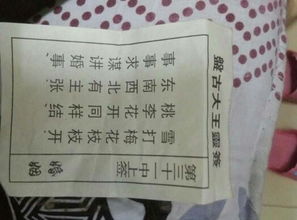 盤古大王靈签
第三十一中上签
婚姻
雪打梅花枝枝开
桃李花开同样结
东南西北有主张
事事求谋讲婚事